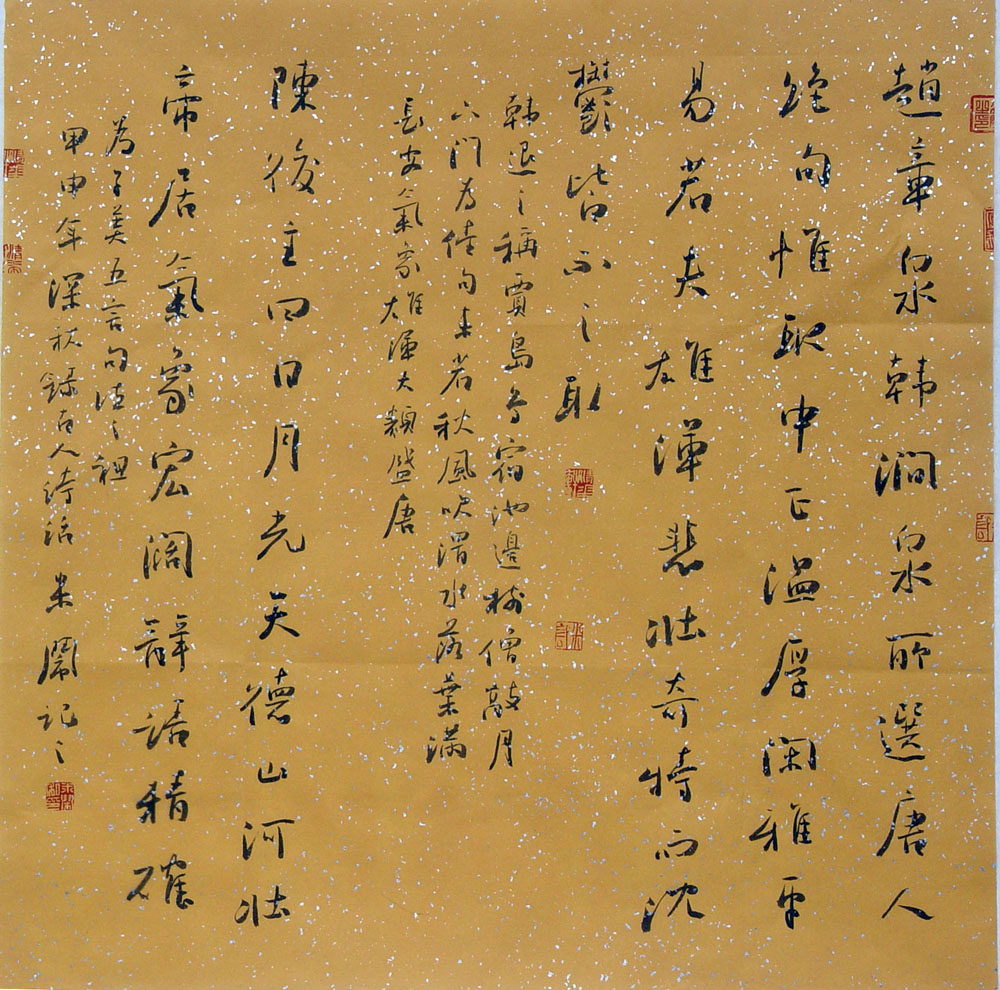 趙章泉韓澗泉所選唐人
絕句惟取中正溫厚閑雅平
易若夫雄渾悲壯奇特而沈
鬱皆不之取
韓退之稱賈島鳥宿池邊樹僧敲月
下門為佳句未若秋風吹渭水落葉滿
長安氣象雄渾大類盛唐
陳後主曰日月光天德山河壯
帝居氣象宏闊辭語精確
為子美五言句法之祖
甲申年深秋錄古人詩話 記之